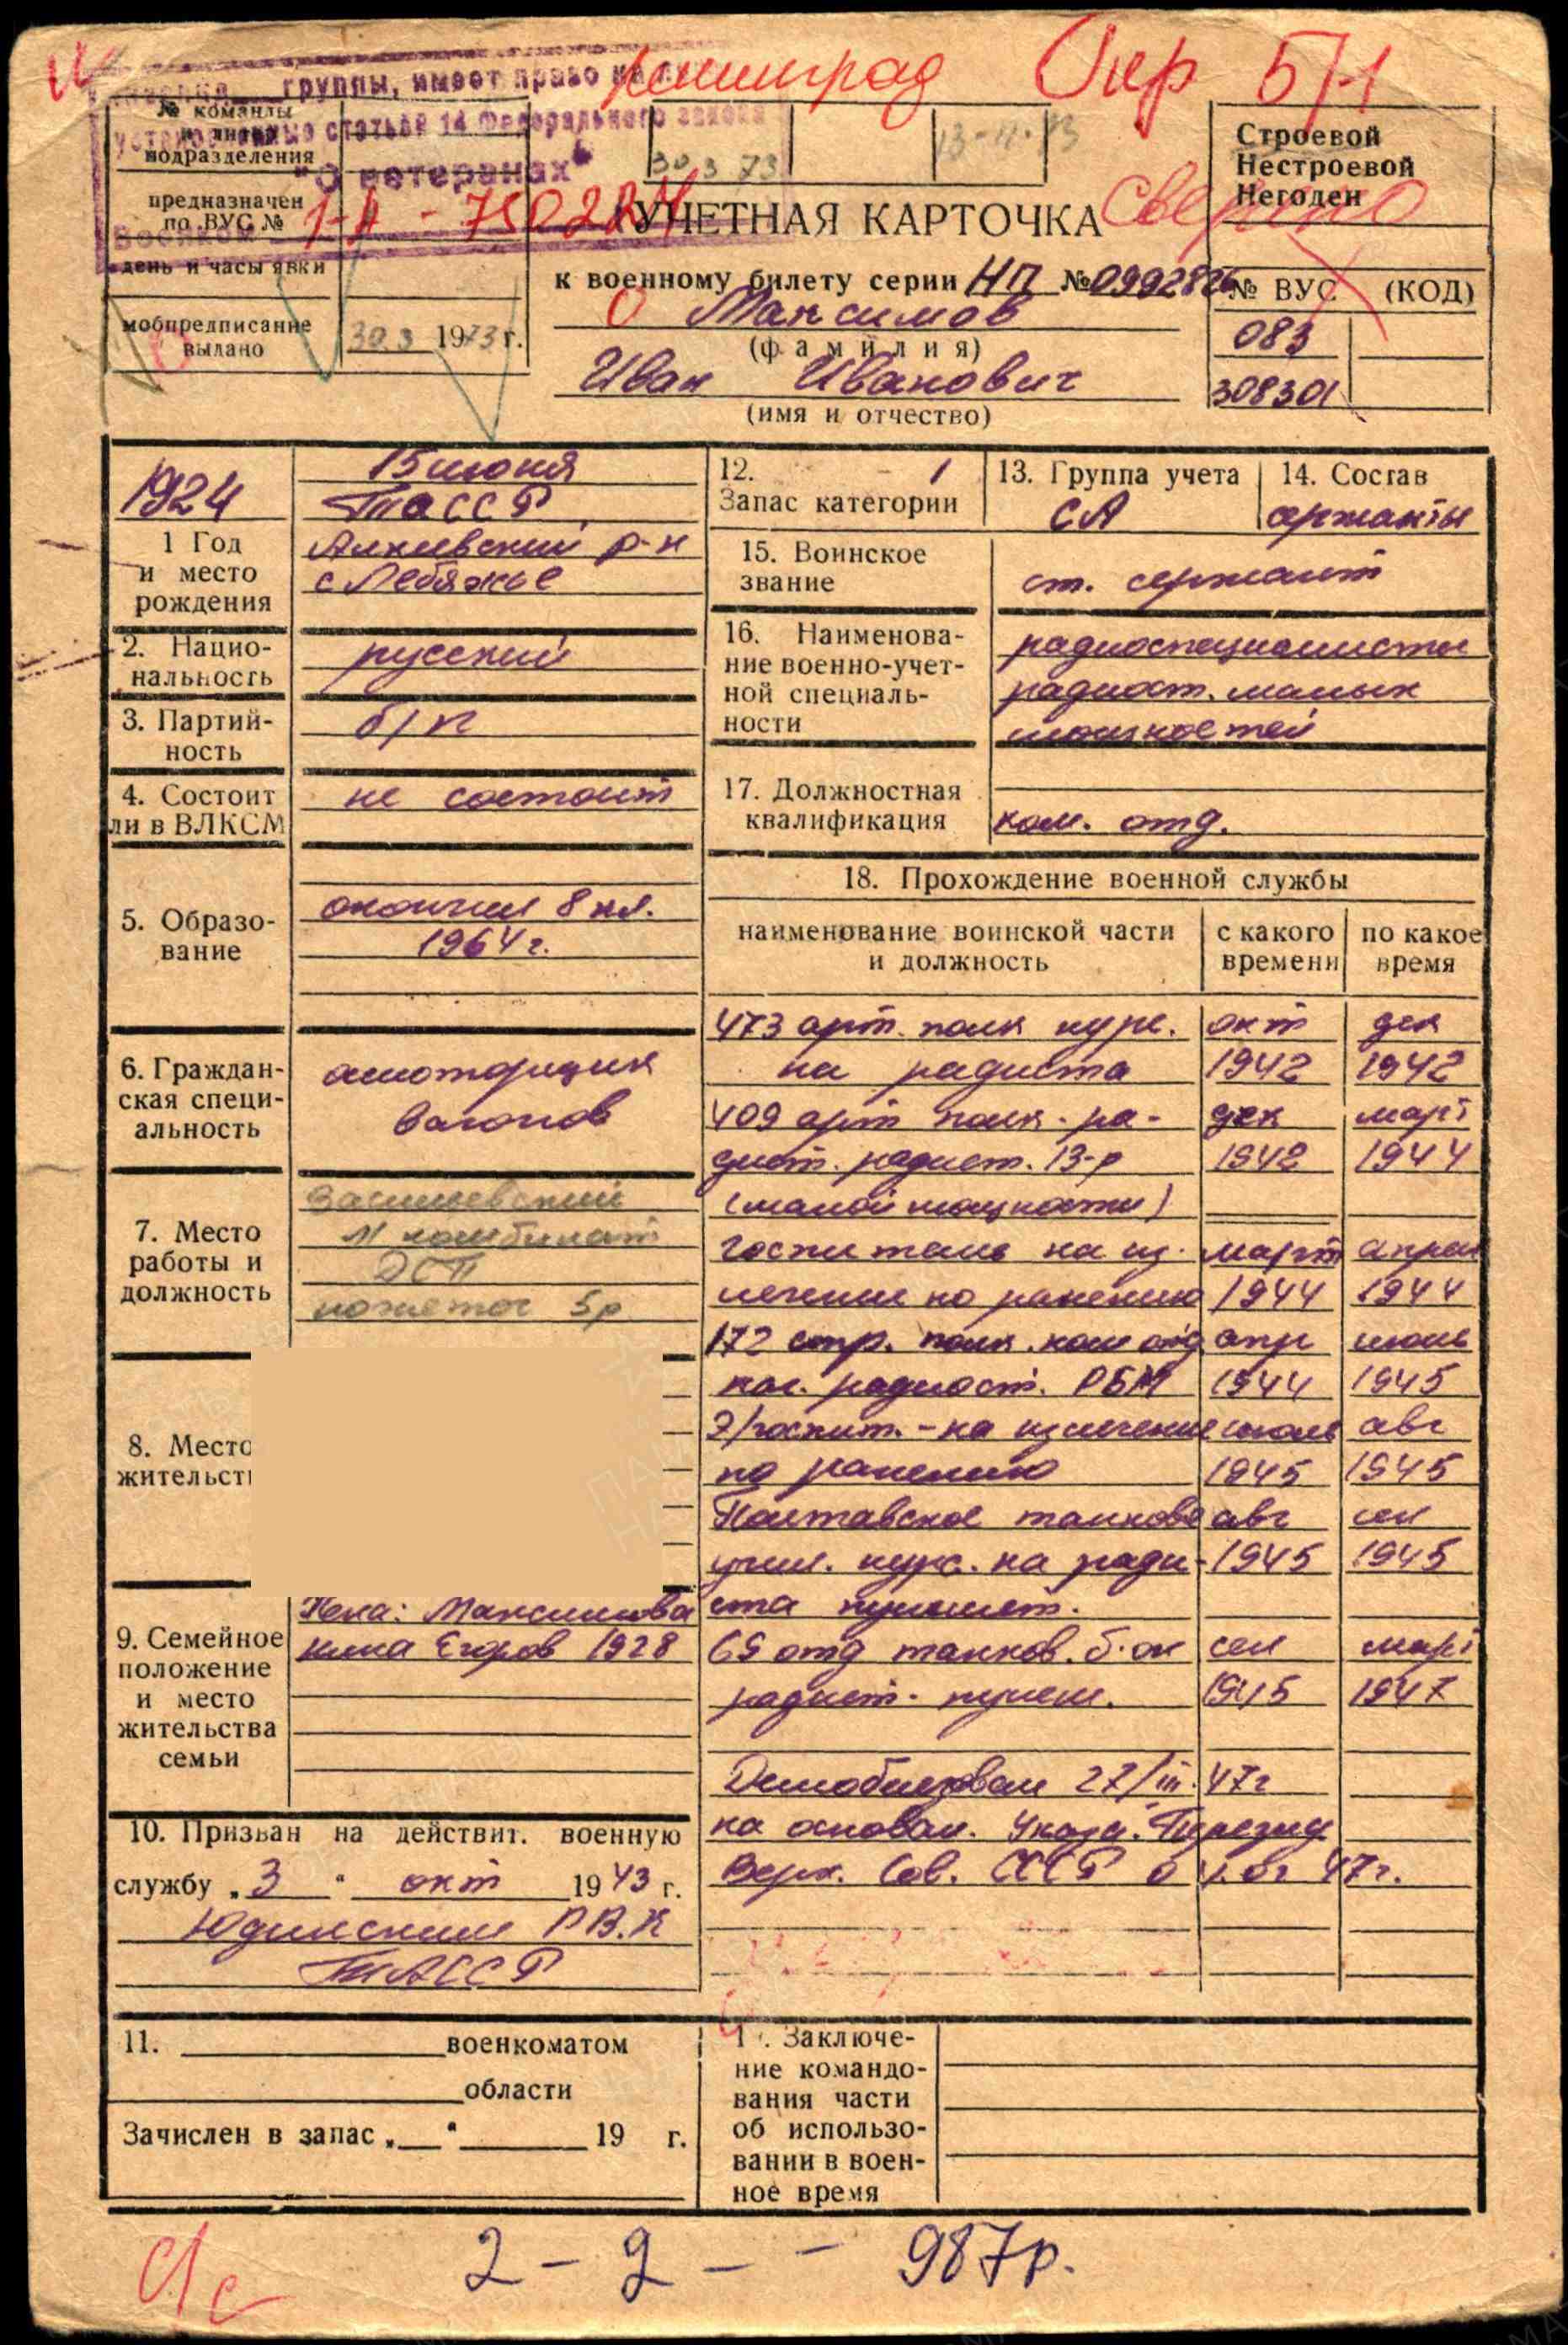 Ленинград Окр 5/1
группы, имеет право на
статьей 14 Федерального закона
"О ветеранах"
№ команды
подразделения
предназначен
по ВУС №
день и часы явки
мобпредписание
вылано
30.3 1973 г.
30.3 73
13-11-73
Строевой
Нестроевой
Негоден
Сверено
УЧЕТНАЯ КАРТОЧКА
к военному билету серии НП № 0992826
О Максимов
(фамилия)
Иван Иванович
(имя и отчество)
№ ВУС (КОД)
083
308301
1924
1 Год
и место
рождения
15 июня
ТАССР
Алкиевский р-н
с Лебяжье
2. Нацио-
нальность
русский
3. Партий-
ность
б/п
4. Состоит
ли в ВЛКСМ
не состоит
5. Образо-
вание
окончил 8 кл.
1964 г.
6. Граждан-
ская специ-
альность
осмотрщик
вагонов
7. Место
работы и
должность
М комбинат
ДСП
5р
8. Место
жительст
9. Семейное
положение
и место
жительства
семьи
Жена: Максимова
Нина Егоров 1928
10. Призван на действит. военную
службу „3" окт 1943 г.
Юдинским РВК
ТАССР
11. военкоматом
области
Зачислен в запас „ " 19 г.
12. 1
Запас категории
13. Группа учета
СА
14. Состав
сержанты
15. Воинское
звание
ст. сержант
16. Наименова-
ние военно-учет-
ной специаль-
ности
радиоспециалисты
радиост. малых
мощностей
17. Должностная
квалификация
ком. отд.
18. Прохождение военной службы
наименование воинской части
и должность
с какого
времени
по какое
время
473 арт. полк курс. окт дек
на радиста 1942 1942
409 арт полк - ра- дек март
дист. радист. 13-р 1942 1944
(малой мощности)
госпиталь на из- март апрел
лечение по ранению 1944 1944
172 стр. полк ком отд апр июль
нач. радиост. РБМ 1944 1945
Э/госпит. - на излечение июль авг
по ранению 1945 1945
Полтавское танково авг сен
учил. курс. на ради- 1945 1945
ста пулемет.
69 отд танков. б-он сен март
радист-пулем. 1945 1947
Демобилизован 27/III. 47г
на основан. Указа Презид
Верх. Сов. СССР 47г.
1 . Заключе-
ние командо-
вания части
об использо-
вании в воен-
ное время
2 - 2 - - 987р.